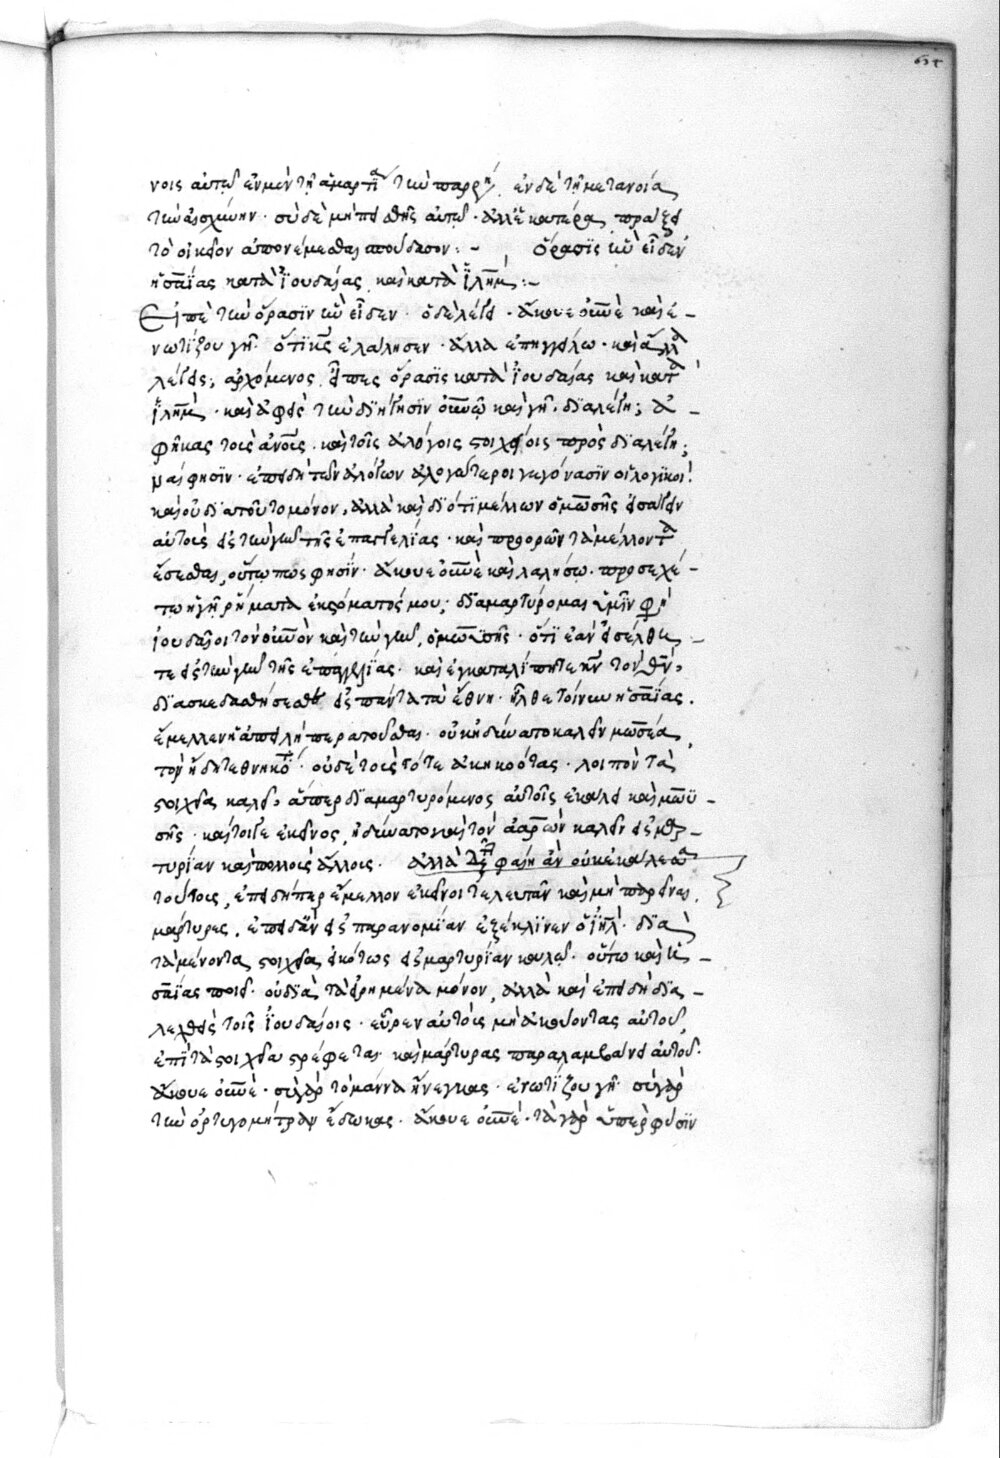 νοις αὐτοῦ ἐν μὲν τῇ ἁμαρτίᾳ τὴν παρρη, ἐν δὲ τῇ μετανοίᾳ
τὴν αἰσχύνην· σὺ δὲ μὴ πεισθῇς αὐτῷ· ἀλλ' ἑκατέρᾳ τάξει
τὸ οἰκεῖον ἀπονέμεσθαι σπούδασον :- ὅρασϊς ἣν εἶδεν
ἡσαΐας κατὰ ἰουδαίας καὶ κατὰ ἱλημ :-
Εἰπὲ τὴν ὅρασϊν ἣν εἶδεν· ὁ δὲ λέγει· ἄκουε οὐνὲ καὶ ἐ-
νωτίζου γῆ· ὅτι κς ἐλάλησεν· ἄλλα ἐπηγγείλω· καὶ ἄλλα
λέγεις; ἀρχόμενος εἶπες ὅρασϊς κατὰ ἰουδαίας καὶ κατὰ
ἱλημ· καὶ ἀφεὶς τὴν διήγησϊν οὐνῷ καὶ γῇ διαλέγῃ; ἀ-
φῆκας τοὺς ἀνους· καὶ τοῖς ἀλόγοις στοιχείοις προσδιαλέγῃ;
ναί φησϊν· ἐπειδὴ τῶν ἀλόγων ἀλογώτεροι γεγόνασϊν οἱ λογϊκοί·
καὶ οὐ διὰ τοῦτο μόνον, ἀλλὰ καὶ διότι μέλλων ὁ μωσῆς εἰσάγειν
αὐτοὺς εἰς τὴν γῆν τῆς ἐπαγγελίας· καὶ προορῶν τὰ μέλλοντα
ἔσεσθαι, οὕτω πώς φησϊν· ἄκουε οὐνὲ καὶ λαλήσω· προσεχέ-
τω ἡ γῆ ῥήματα ἐκ στόματός μου; διαμαρτύρομαι ὑμῖν φη
ἰουδαῖοι τὸν οὐνὸν καὶ τὴν γῆν, ὁ μωυσῆς· ὅτι ἐὰν εἰσέλθη-
τε εἰς τὴν γῆν τῆς ἐπαγγελίας· καὶ ἐγκαταλίπητε κν τὸν θν,
διασκεδασθήσεσθε εἰς πάντα τὰ ἔθνη· ἦλθε τοίνυν ἡσαΐας·
ἔμελλεν ἡ ἀπειλὴ περατοῦσθαι· οὐκ ἠδύνατο καλεῖν μωσέα,
τὸν ἤδη τεθνηκότα· οὐδὲ τοὺς τότε ἀκηκοότας· λοιπὸν τὰ
στοιχεῖα καλεῖ, ἅπερ διαμαρτυρόμενος αὐτοῖς ἐκάλει καὶ μωϋ-
σῆς· καίτοιγε ἐκεῖνος, ἠδύνατο καὶ τὸν ἀαρὼν καλεῖν εἰς μαρ-
τυρίαν καὶ πολλοὺς ἄλλους· ἀλλὰ φαίη ἂν οὐκ ἐκάλεσα
τούτους, ἐπειδήπερ ἔμελλον ἐκεῖνοι τελευτᾶν καὶ μὴ παρεῖναι
μάρτυρες, ἐπειδὰν εἰς παρανομίαν ἐξέκλινεν ὁ ἰηλ· διὰ
τὰ μένοντα στοιχεῖα εἰκότως εἰς μαρτυρίαν καλῶ· οὕτω καὶ ἡ-
σαΐας ποιεῖ· οὐ διὰ τὰ εἰρημένα μόνον, ἀλλὰ καὶ ἐπειδὴ δια-
λεχθεὶς τοῖς ἰουδαίοις· εὗρεν αὐτοὺς μὴ ἀκούοντας αὐτοῦ,
ἐπὶ τὰ στοιχεῖα στρέφεται καὶ μάρτυρας παραλαμβάνει αὐτοῦ·
ἄκουε οὐνέ· σὺ γὰρ τὸ μάννα ἤνεγκας· ἐνωτίζου γῆ· σὺ γὰρ
τὴν ὀρτυγομήτραν ἔδωκας· ἄκουε οὐνέ· τὰ γὰρ ὑπὲρ φύσϊν